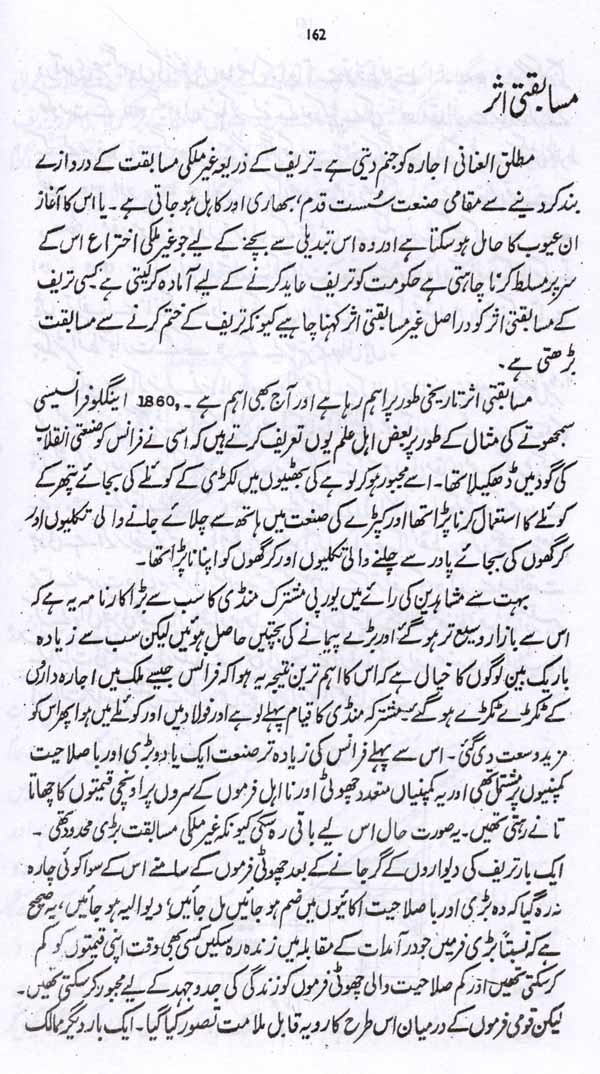 162
مسابقتی اثر
مطلق العنانی اجارہ کو جنم دیتی ہے۔ تریف کے ذریعہ غیر ملکی مسابقت کے دروازے
بند کر دینے سے مقامی صنعت سُست قدم، بھاری اور کاہل ہو جاتی ہے۔ یا اس کا آغاز
ان عیوب کا حامل ہو سکتا ہے اور وہ اس تبدیلی سے بچنے کے لیے جو غیر ملکی اختراع اس کے
سر پر مسلط کرنا چاہتی ہے حکومت کو تریف عاید کرنے کے لیے آمادہ کر لیتی ہے کسی تریف
کے مسابقتی اثر کو دراصل غیر مسابقتی اثر کہنا چاہیے کیونکہ تریف کے ختم کرنے سے مسابقت
بڑھتی ہے۔
مسابقتی اثر تاریخی طور پر اہم رہا ہے اور آج بھی اہم ہے۔ 1860ء اینگلو فرانسیسی
سمجھوتے کی مثال کے طور پر بعض اہل علم یوں تعریف کرتے ہیں کہ اسی نے فرانس کو صنعتی انقلاب
کی گود میں ڈھکیلا تھا۔ اسے مجبور ہو کر لوہے کی بھٹیوں میں لکڑی کے کوئلے کی بجائے پتھر کے
کوئلے کا استعمال کرنا پڑا تھا اور کپڑے کی صنعت میں ہاتھ سے چلائے جانے والی تکلیوں اور
کرگھوں کی بجائے پاور سے چلنے والی تکلیوں اور کرگھوں کو اپنانا پڑا تھا۔
بہت سے مشاہرین کی رائے میں یورپی مشترک منڈی کا سب سے بڑا کارنامہ یہ ہے کہ
اس سے بازار وسیع تر ہو گئے اور بڑے پیمانے کی بچتیں حاصل ہوئیں لیکن سب سے زیادہ
باریک بین لوگوں کا خیال ہے کہ اس کا اہم ترین نتیجہ یہ ہوا کہ فرانس جیسے ملک میں اجارہ داریوں
کے ٹکڑے ٹکڑے ہو گئے مشترکہ منڈی کا قیام پہلے لوہے اور فولاد میں اور کوئلے میں ہوا پھر اس کو
مزید وسعت دی گئی۔ اس سے پہلے فرانس کی زیادہ تر صنعت ایک یا دو بڑی اور باصلاحیت
کمپنیوں پر مشتمل تھی اور یہ کمپنیاں متعدد چھوٹی اور نااہل فرموں کے سروں پر اونچی قیمتوں کا چھاتا
تانے رہتی تھیں۔ یہ صورت حال اس لیے باقی رہ سکی کیونکہ غیر ملکی مسابقت بڑی محدود تھی۔
ایک بار تریف کی دیواروں کے گر جانے کے بعد چھوٹی فرموں کے سامنے اس کے سوا کوئی چارہ
نہ رہ گیا کہ وہ بڑی اور باصلاحیت اکائیوں میں ضم ہو جائیں مل جائیں، دیوالیہ ہو جائیں، یہ صحیح
ہے کہ نسبتاً بڑی فرمیں جو درآمدات کے مقابلہ میں زندہ رہ سکیں کسی بھی وقت اپنی قیمتوں کو کم
کر سکتی تھیں اور کم صلاحیت والی چھوٹی فرموں کو زندگی کی جدوجہد کے لیے مجبور کر سکتی تھیں۔
لیکن قومی فرموں کے درمیان اس طرح کا رویہ قابل ملامت تصور کیا گیا۔ ایک بار دیگر ممالک